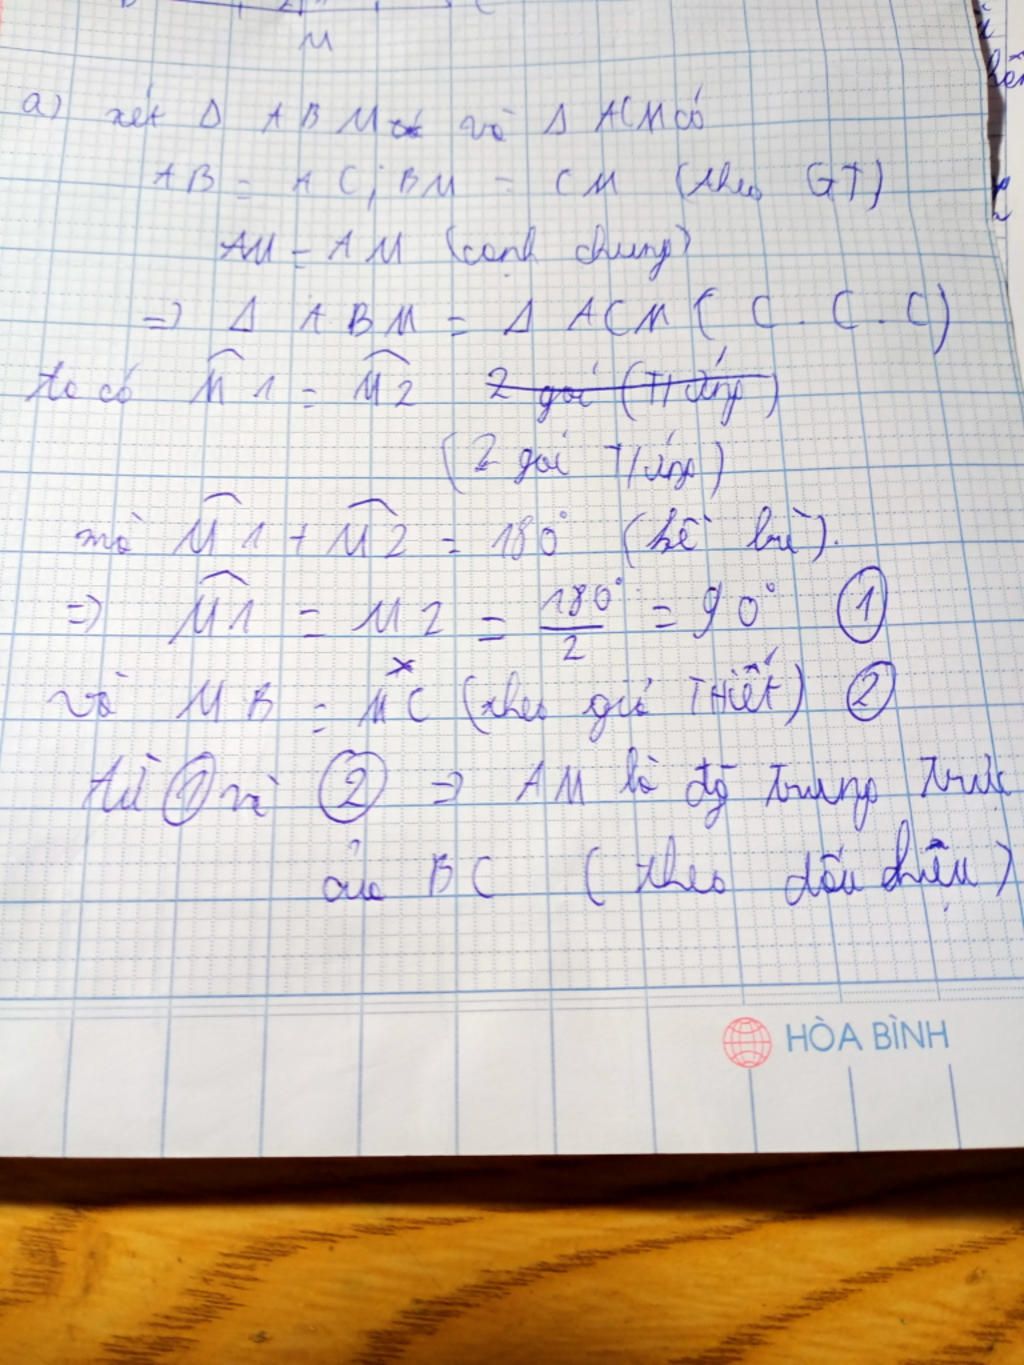 M
a) xét Δ ABM và Δ ACM có
AB = AC; BM = CM (theo GT)
AM = AM (cạnh chung)
=> Δ ABM = Δ ACM (C.C.C)
ta có M1 = M2 2 góc (T/ứng)
(2 góc T/ứng)
mà M1 + M2 = 180° (kề bù).
=> M1 = M2 = 180°/2 = 90° ①
và MB = MC (theo giả THiết) ②
từ ① và ② => AM là đg Trung Trực
của BC (theo dấu hiệu)
HÒA BÌNH